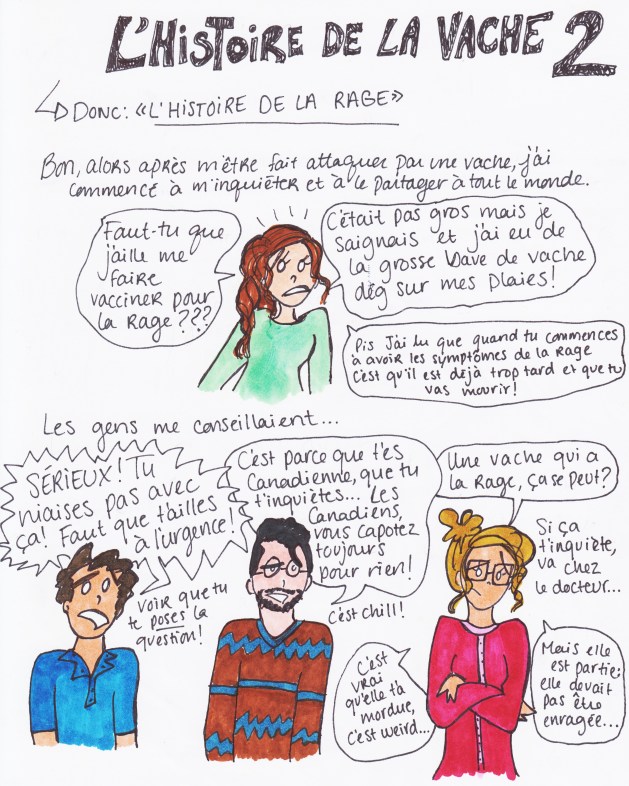 L'HISTOIRE DE LA VACHE 2
DONC: «L'HISTOIRE DE LA RAGE»
Bon, alors après m'être fait attaquer par une vache, j'ai
commencé à m'inquiéter et à le partager à tout le monde.
Faut-tu que
j'aille me
faire
vacciner pour
la Rage ???
C'était pas gros mais je
saignais et j'ai eu de
la grosse bave de vache
dég sur mes plaies!
Pis j'ai lu que quand tu commences
à avoir les symptômes de la Rage
c'est qu'il est déjà trop tard et que tu
vas mourir!
Les gens me conseillaient...
SÉRIEUX! Tu
niaises pas avec
ça! Faut que t'ailles
à l'urgence!
Voir que tu
te poses la
question!
C'est parce que t'es
Canadienne, que tu
t'inquiètes... Les
Canadiens,
vous capotez
toujours
pour rien!
C'est chill!
Une vache qui a
la Rage, ça se peut?
Si ça
t'inquiète,
va chez
le docteur...
C'est
vrai
qu'elle t'a
mordue,
c'est weird...
Mais elle
est partie;
elle devait
pas être
enragée...